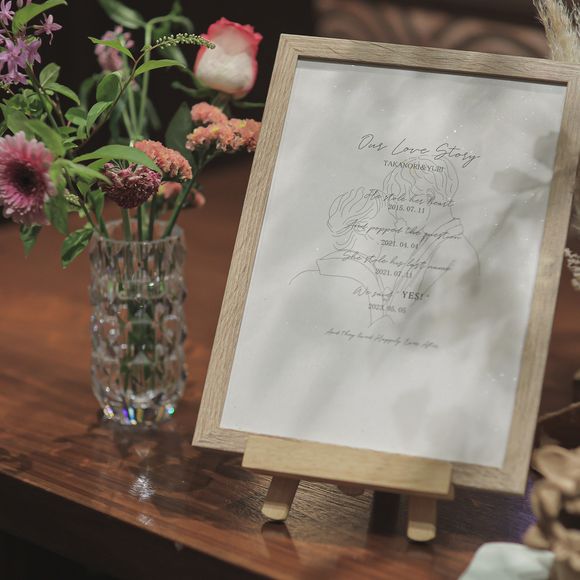 Our Love Story
TAKANORI&YURI
He stole her heart,
2015. 07. 11
And popped the question
2021. 04. 04
She stole his last name
2021. 07. 11
We said "YES!"
2023. 05. 05
And they lived Happily Ever After